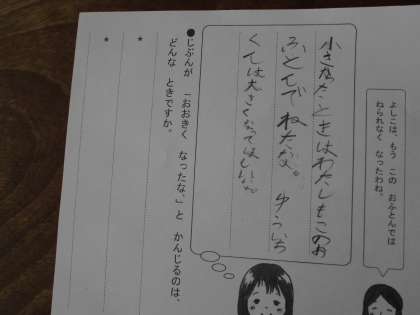 よしこは、もう この おふとんでは
ねられなく なったわね。
小さなたときはわたしもこのお
ふとんでねたな。ゆういち
くんは大きくなってほしいな
●じぶんが 「おおきく なったな。」と かんじるのは、
どんな ときですか。
★
★